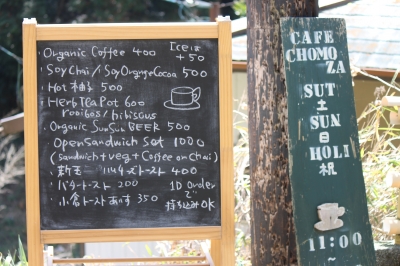 Organic Coffee 400
Iceは
+50
Soy Chai / Soy Orange Cocoa 500
Hot 柚子 500
Herb Tea Pot 600
rooibos / hibiscus
Organic SunSun BEER 500
Open Sandwich Set 1000
(sandwich + veg + Coffee or Chai)
トースト 400
バタートースト 200
小倉トースト 350
1D order
で
持ち込みOK
CAFE
CHOMO
ZA
SUT
土
SUN
日
HOLI
祝
11:00~